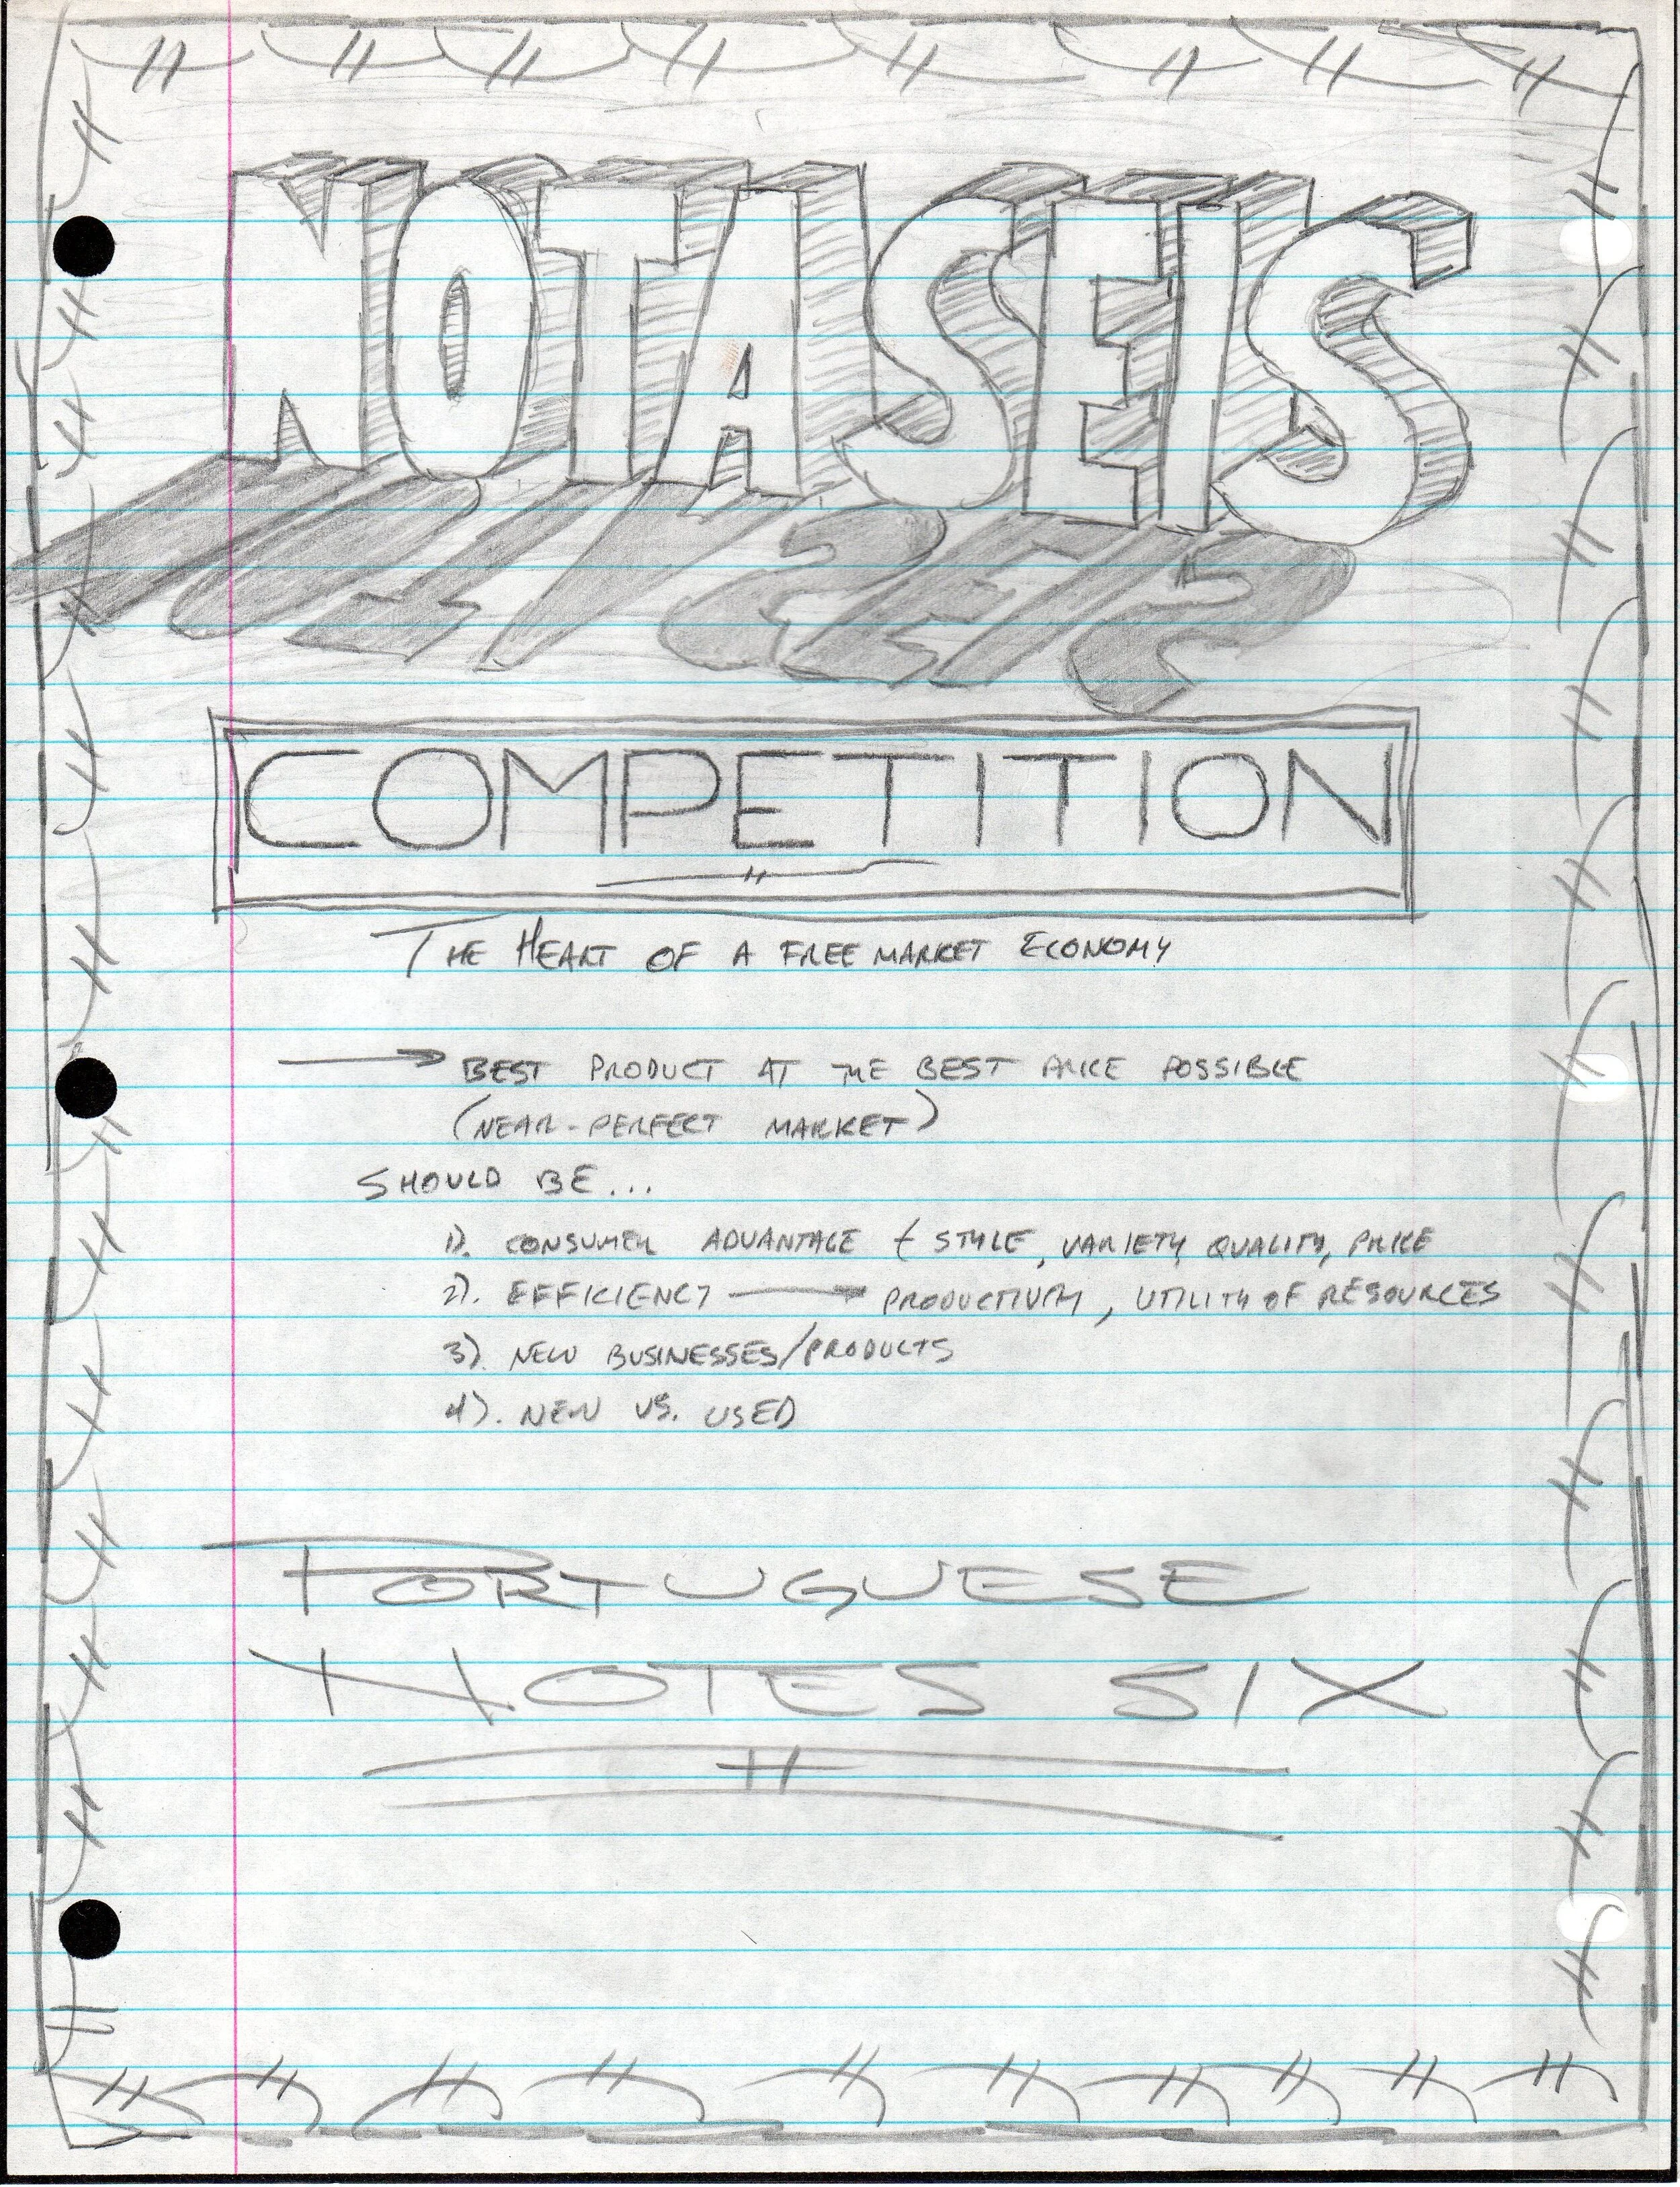 NOTASEIS
COMPETITION
THE HEART OF A FREE MARKET ECONOMY
→ BEST PRODUCT AT THE BEST PRICE POSSIBLE
(NEAR-PERFECT MARKET)
SHOULD BE...
1). CONSUMER ADVANTAGE { STYLE, VARIETY, QUALITY, PRICE
2). EFFICIENCY → PRODUCTIVITY, UTILITY OF RESOURCES
3). NEW BUSINESSES/PRODUCTS
4). NEW VS. USED
PORTUGUESE
NOTES SIX